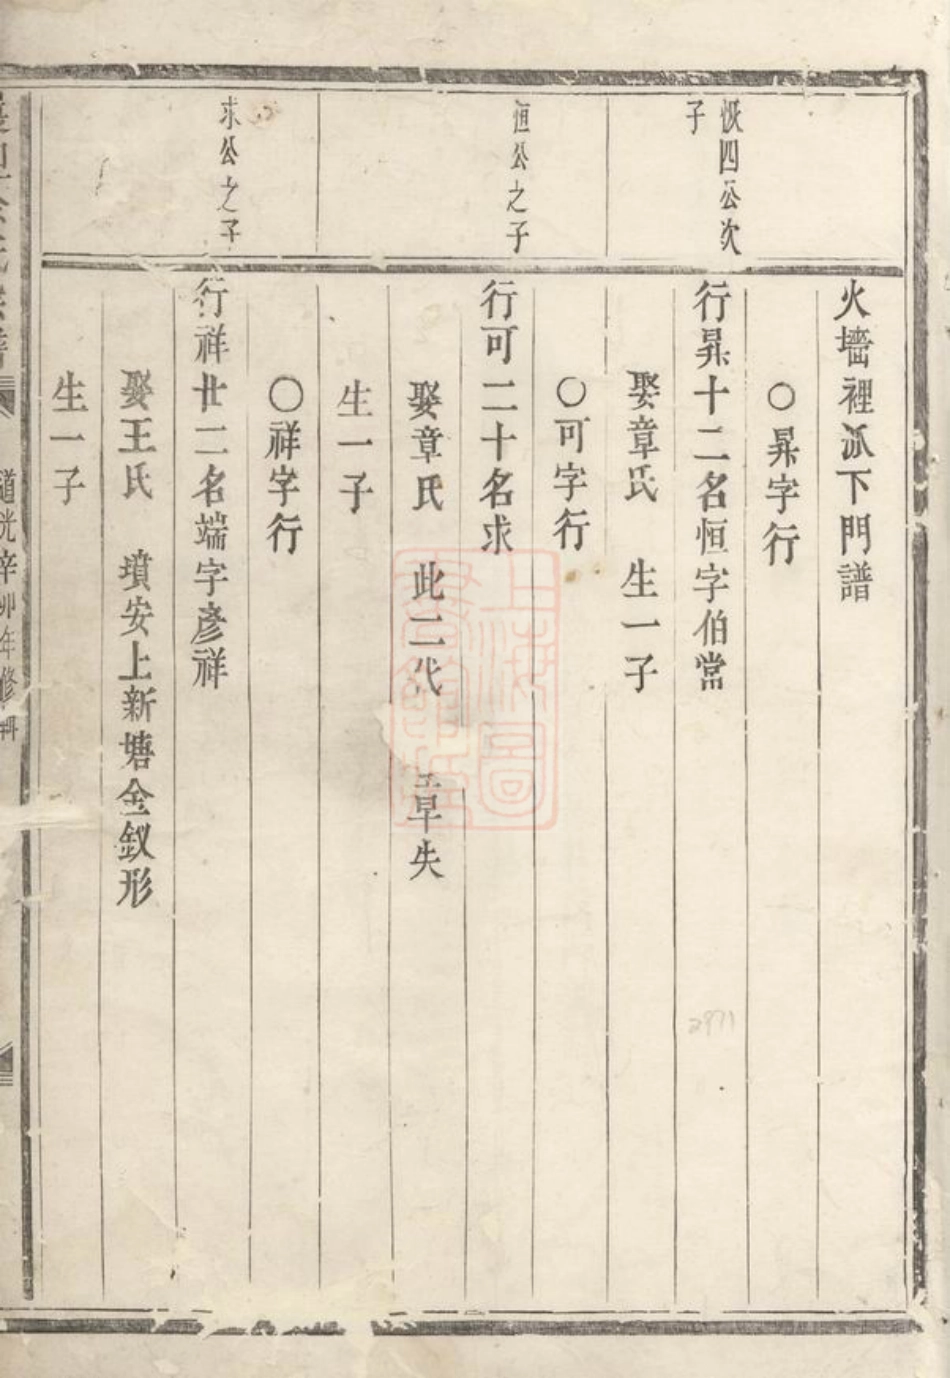 火墻裡派下門譜
○昇字行
恢四公次
子
行昇十二名恒字伯當
娶章氏 生一子
○可字行
恒公之子
行可二十名求
娶章氏 此二代 章失
生一子
○祥字行
求公之子
行祥廿二名端字彥祥
娶王氏 墳安上新塘金釵形
生一子
道光辛卯年修輯
上海圖
書館藏
2971